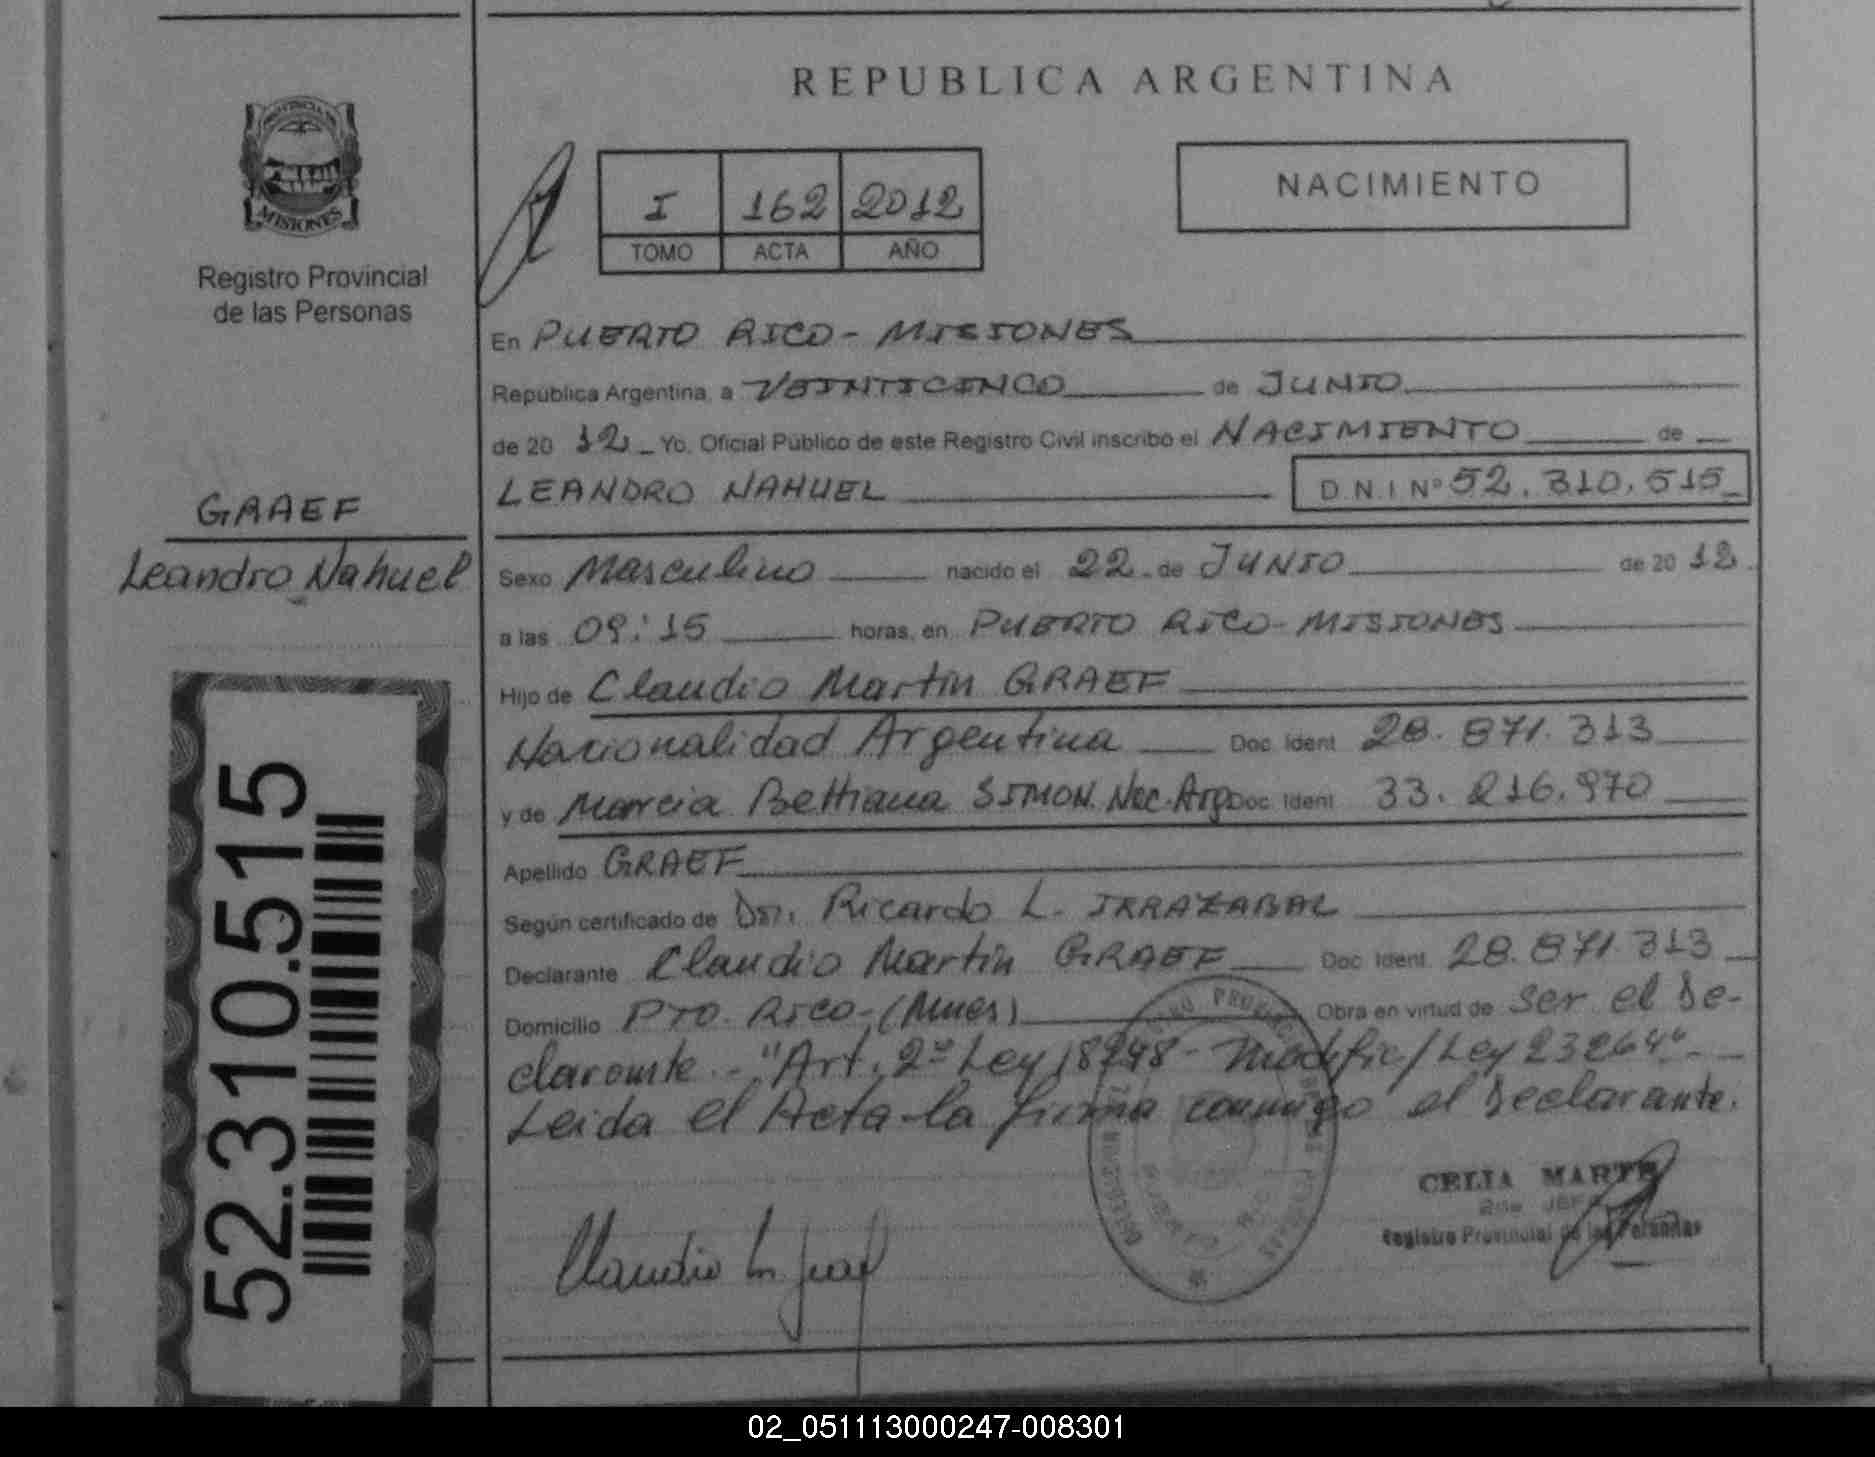 REPUBLICA ARGENTINA
PROVINCIA DE
MISIONES
Registro Provincial
de las Personas
I 162 2012
TOMO ACTA AÑO
NACIMIENTO
En PUERTO RICO - MISIONES
República Argentina, a VEINTICINCO de JUNIO
de 20 12 Yo, Oficial Público de este Registro Civil inscribo el NACIMIENTO de
LEANDRO NAHUEL D.N.I Nº 52.310.515
GRAEF
Leandro Nahuel
Sexo Masculino nacido el 22 de JUNIO de 20 12
a las 09:15 horas, en PUERTO RICO - MISIONES
Hijo de Claudio Martin GRAEF
Nacionalidad Argentina Doc. Ident. 28.871.313
y de Marcia Bettiana SIMON. Nac. Arg. Doc. Ident. 33.216.970
Apellido GRAEF
Según certificado de Dr. Ricardo L. IRRAZABAL
Declarante Claudio Martin GRAEF Doc. Ident. 28.871.313
Domicilio PTO. RICO - (Mnes) Obra en virtud de ser el De-
clarante.- "Art. 2º Ley 18248 - Modific/Ley 23264"
Leida el Acta la firma conmigo el Declarante.
52.310.515
CELIA
Registro Provincial de las Personas
02_051113000247-008301